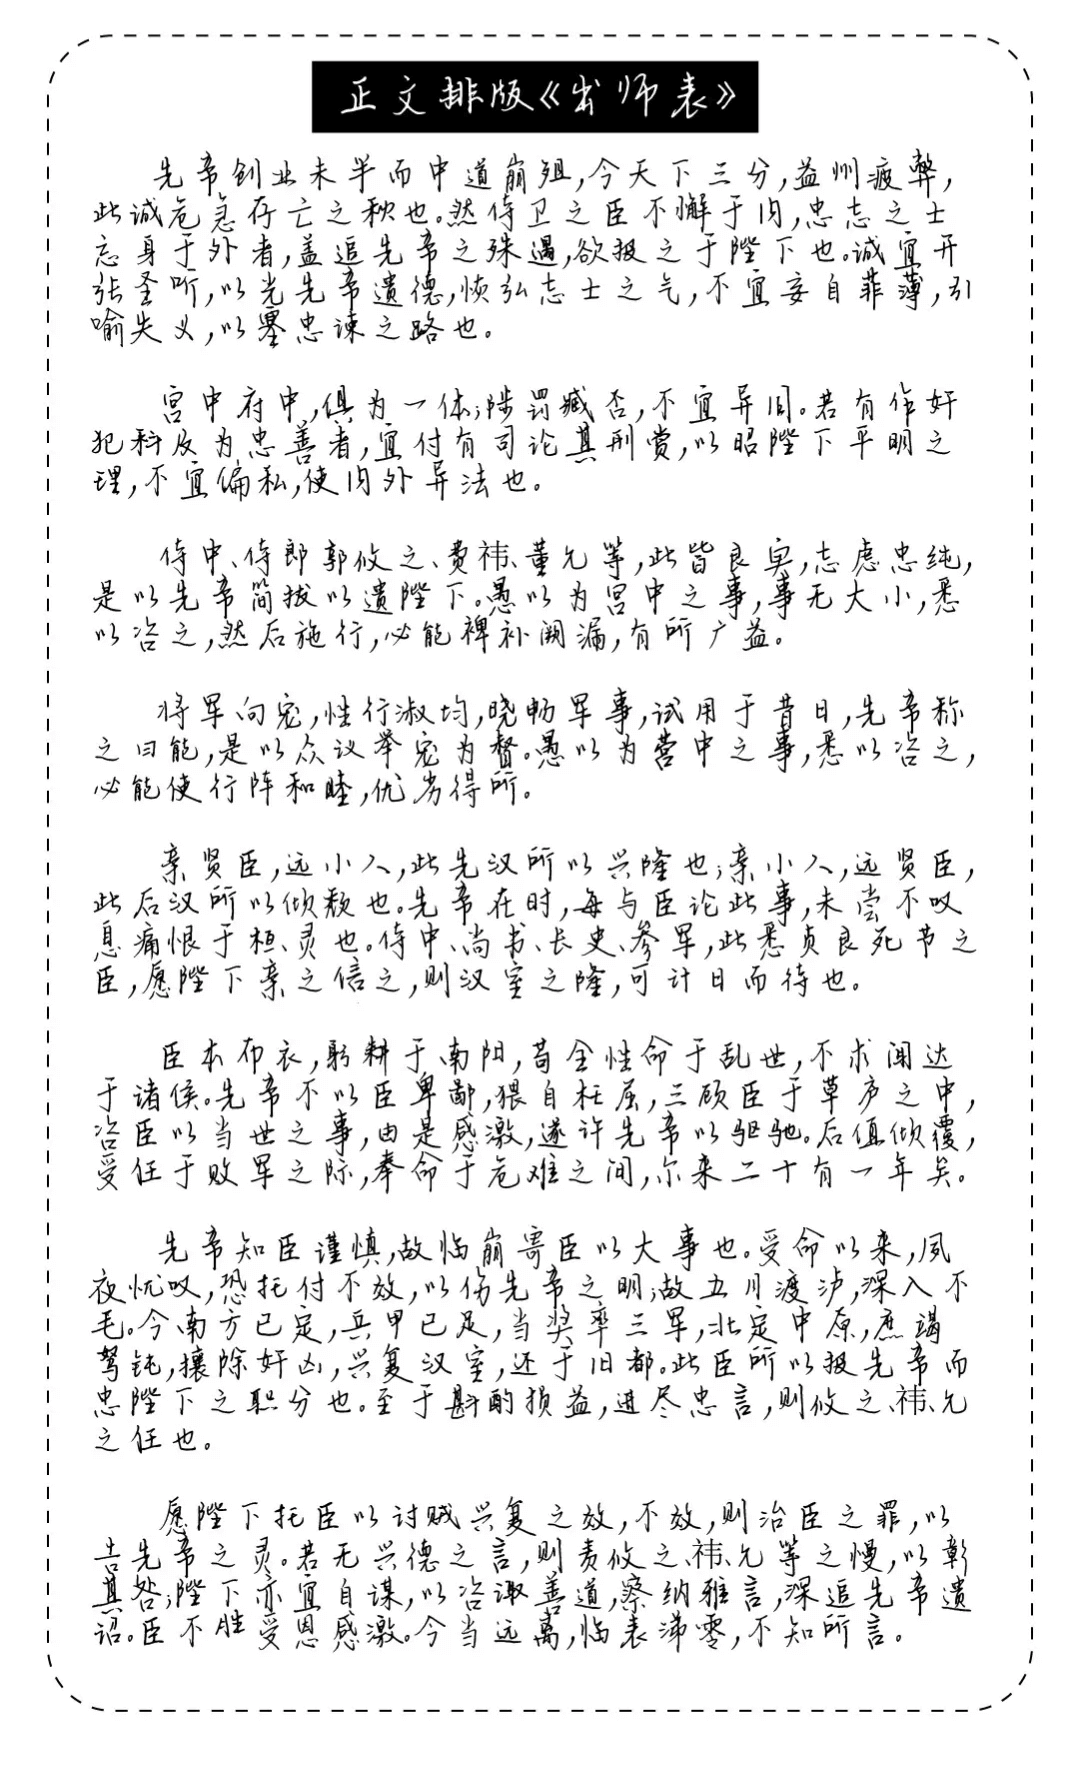 正文排版《出师表》
先帝创业未半而中道崩殂,今天下三分,益州疲弊,
此诚危急存亡之秋也。然侍卫之臣不懈于内,忠志之士
忘身于外者,盖追先帝之殊遇,欲报之于陛下也。诚宜开
张圣听,以光先帝遗德,恢弘志士之气,不宜妄自菲薄,引
喻失义,以塞忠谏之路也。
宫中府中,俱为一体;陟罚臧否,不宜异同。若有作奸
犯科及为忠善者,宜付有司论其刑赏,以昭陛下平明之
理,不宜偏私,使内外异法也。
侍中、侍郎郭攸之、费祎、董允等,此皆良实,志虑忠纯,
是以先帝简拔以遗陛下。愚以为宫中之事,事无大小,悉
以咨之,然后施行,必能裨补阙漏,有所广益。
将军向宠,性行淑均,晓畅军事,试用于昔日,先帝称
之曰能,是以众议举宠为督。愚以为营中之事,悉以咨之,
必能使行阵和睦,优劣得所。
亲贤臣,远小人,此先汉所以兴隆也;亲小人,远贤臣,
此后汉所以倾颓也。先帝在时,每与臣论此事,未尝不叹
息痛恨于桓、灵也。侍中、尚书、长史、参军,此悉贞良死节之
臣,愿陛下亲之信之,则汉室之隆,可计日而待也。
臣本布衣,躬耕于南阳,苟全性命于乱世,不求闻达
于诸侯。先帝不以臣卑鄙,猥自枉屈,三顾臣于草庐之中,
咨臣以当世之事,由是感激,遂许先帝以驱驰。后值倾覆,
受任于败军之际,奉命于危难之间,尔来二十有一年矣。
先帝知臣谨慎,故临崩寄臣以大事也。受命以来,夙
夜忧叹,恐托付不效,以伤先帝之明;故五月渡泸,深入不
毛。今南方已定,兵甲已足,当奖率三军,北定中原,庶竭
驽钝,攘除奸凶,兴复汉室,还于旧都。此臣所以报先帝而
忠陛下之职分也。至于斟酌损益,进尽忠言,则攸之、祎、允
之任也。
愿陛下托臣以讨贼兴复之效,不效,则治臣之罪,以
告先帝之灵。若无兴德之言,则责攸之、祎、允等之慢,以彰
其咎;陛下亦宜自谋,以咨诹善道,察纳雅言,深追先帝遗
诏。臣不胜受恩感激。今当远离,临表涕零,不知所言。